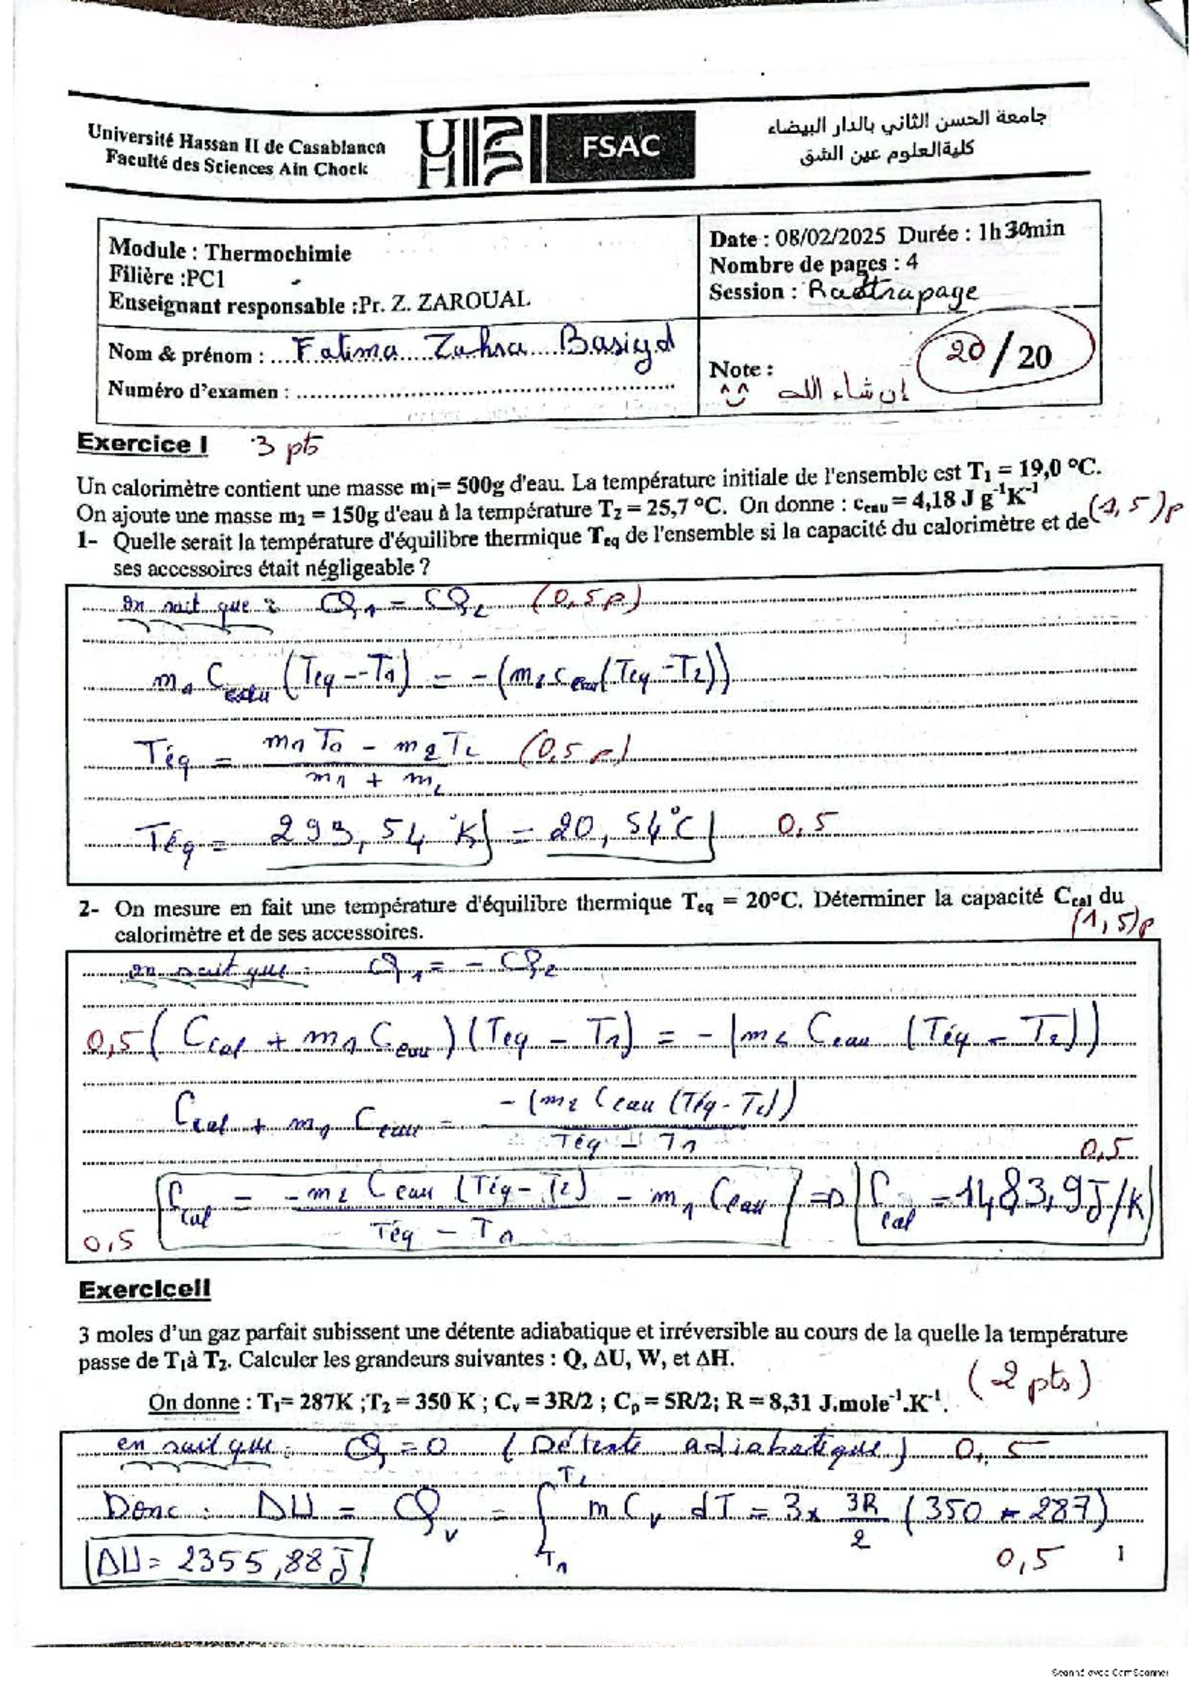 Université Hassan II de Casablanca
Faculté des Sciences Ain Chock
UH2C
FSAC
جامعة الحسن الثاني بالدار البيضاء
كلية العلوم عين الشق
Module : Thermochimie
Filière :PC1
Enseignant responsable :Pr. Z. ZAROUAL
Date : 08/02/2025 Durée : 1h30min
Nombre de pages : 4
Session : Rattrapage
Nom & prénom : ...Fatima Zahra Basiyd
Numéro d'examen :
Note :
إن شاء الله
20/20
Exercice I 3 pts
Un calorimètre contient une masse m₁= 500g d'eau. La température initiale de l'ensemble est T₁ = 19,0 °C.
On ajoute une masse m₂ = 150g d'eau à la température T₂ = 25,7 °C. On donne : ceau = 4,18 J g⁻¹K⁻¹
(1,5)p
1- Quelle serait la température d'équilibre thermique Teq de l'ensemble si la capacité du calorimètre et de
ses accessoires était négligeable ?
on sait que : Q₁ = Q₂ (0,5p)
m₁ Ceau (Teq - T₁) = -(m₂ ceau (Teq - T₂))
Téq = m₁T₁ - m₂T₂ / m₁ + m₂ (0,5 p)
Téq = 293,54 °K = 20,54°C 0,5
2- On mesure en fait une température d'équilibre thermique Teq = 20°C. Déterminer la capacité Ccal du
calorimètre et de ses accessoires.
(1,5)p
on sait que : Q₁ = - Q₂
0,5 (Ccal + m₁ Ceau) (Teq - T₁) = - (m₂ Ceau (Téq - T₂))
Ccal + m₁ Ceau = -(m₂ Ceau (Téq - T₂)) / Téq - T₁
0,5
Ccal = -m₂ Ceau (Téq - T₂) / Téq - T₁ - m₁ Ceau ⇒ Ccal = 1483,9 J/K
0,5
ExerciceII
3 moles d'un gaz parfait subissent une détente adiabatique et irréversible au cours de la quelle la température
passe de T₁à T₂. Calculer les grandeurs suivantes : Q, ΔU, W, et ΔH.
(2 pts)
On donne : T₁= 287K ;T₂ = 350 K ; Cv = 3R/2 ; Cp = 5R/2; R = 8,31 J.mole⁻¹.K⁻¹.
on sait que : Q = 0 (Détente adiabatique) 0,5
Donc : ΔU = Qv = ∫T₁T₂ m Cv dT = 3 x 3R/2 (350 - 287)
ΔU = 2355,88 J
0,5
1
Scanné avec CamScanner